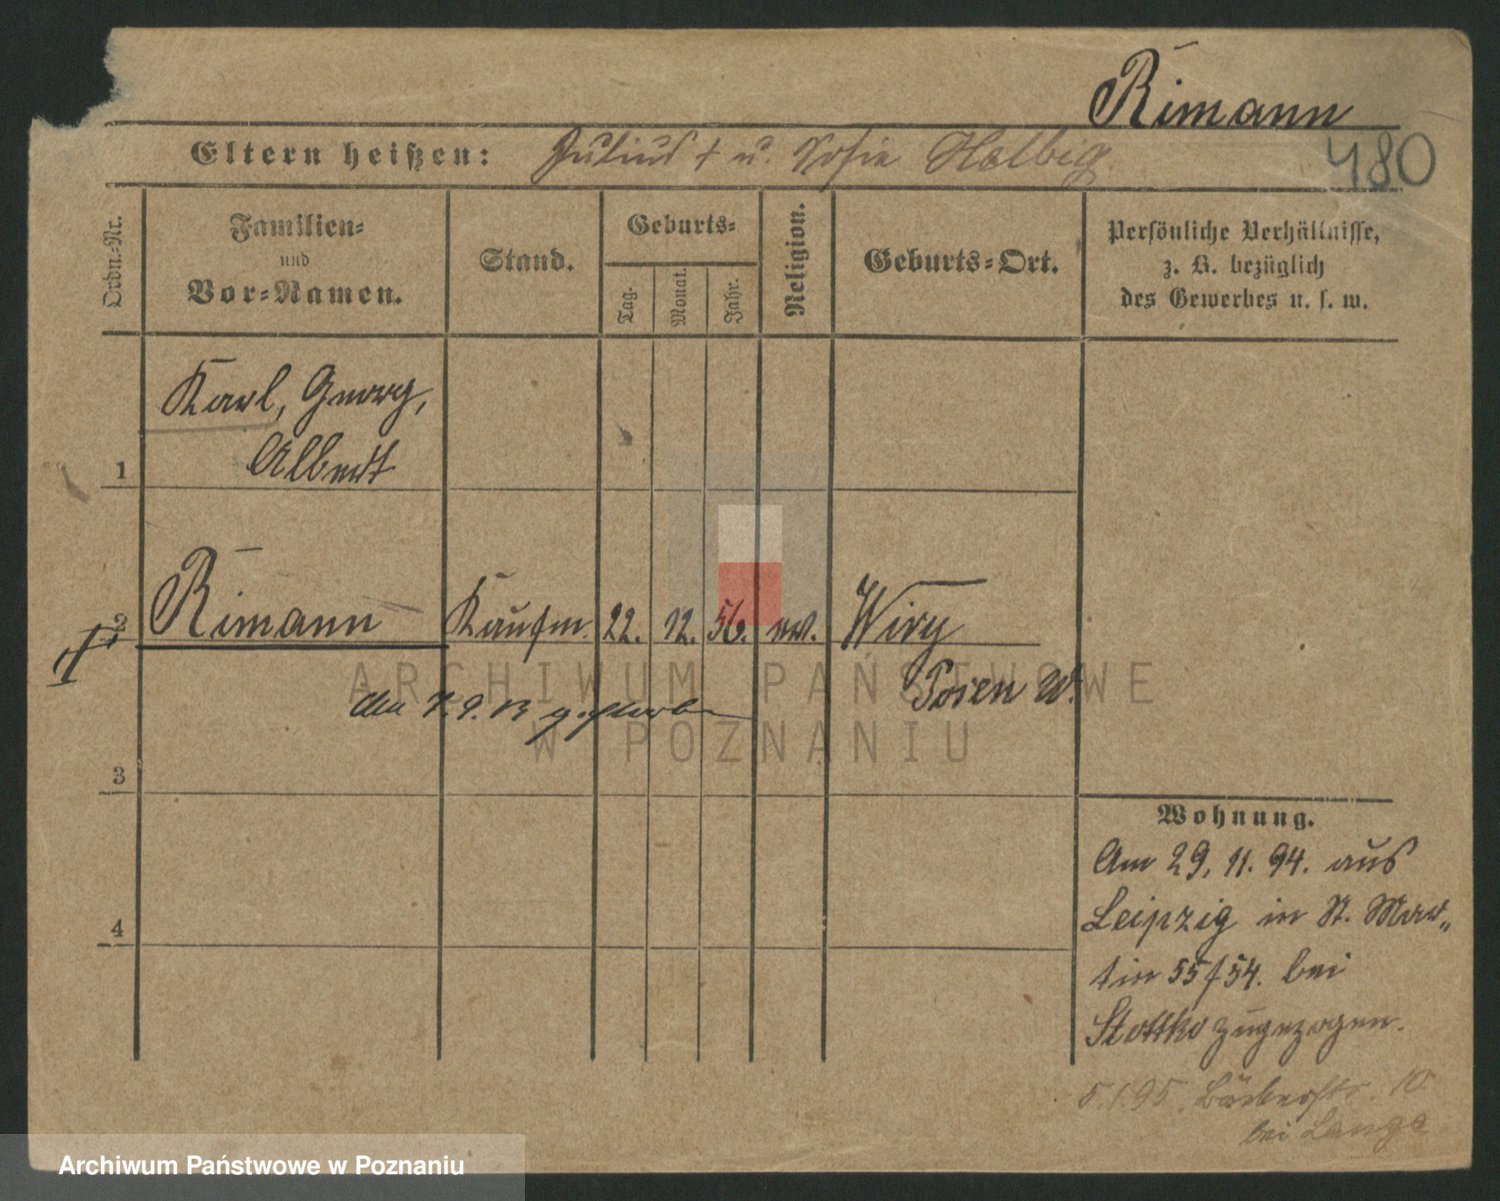 Rimann
480
Eltern heißen: Julius † u. Sofie Helbig.
Ordn.-Nr.
Familien-
und
Vor-Namen.
Stand.
Geburts-
Tag.
Monat.
Jahr.
Religion.
Geburts-Ort.
Persönliche Verhältnisse,
z. B. bezüglich
des Gewerbes u. s. w.
Karl, Georg,
1 Albert
2 Rimann Kaufm. 22. 12. 56. ev. Wiry
Posen W.
den 7. 9. 13 gestorben
3
4
Wohnung.
Am 29. 11. 94. aus
Leipzig in St. Mar„
tin 55/54. bei
Stottko zugezogen.
5.1.95. Bäckerstr. 10
bei Lange
ARCHIWUM PAŃSTWOWE
W POZNANIU
Archiwum Państwowe w Poznaniu